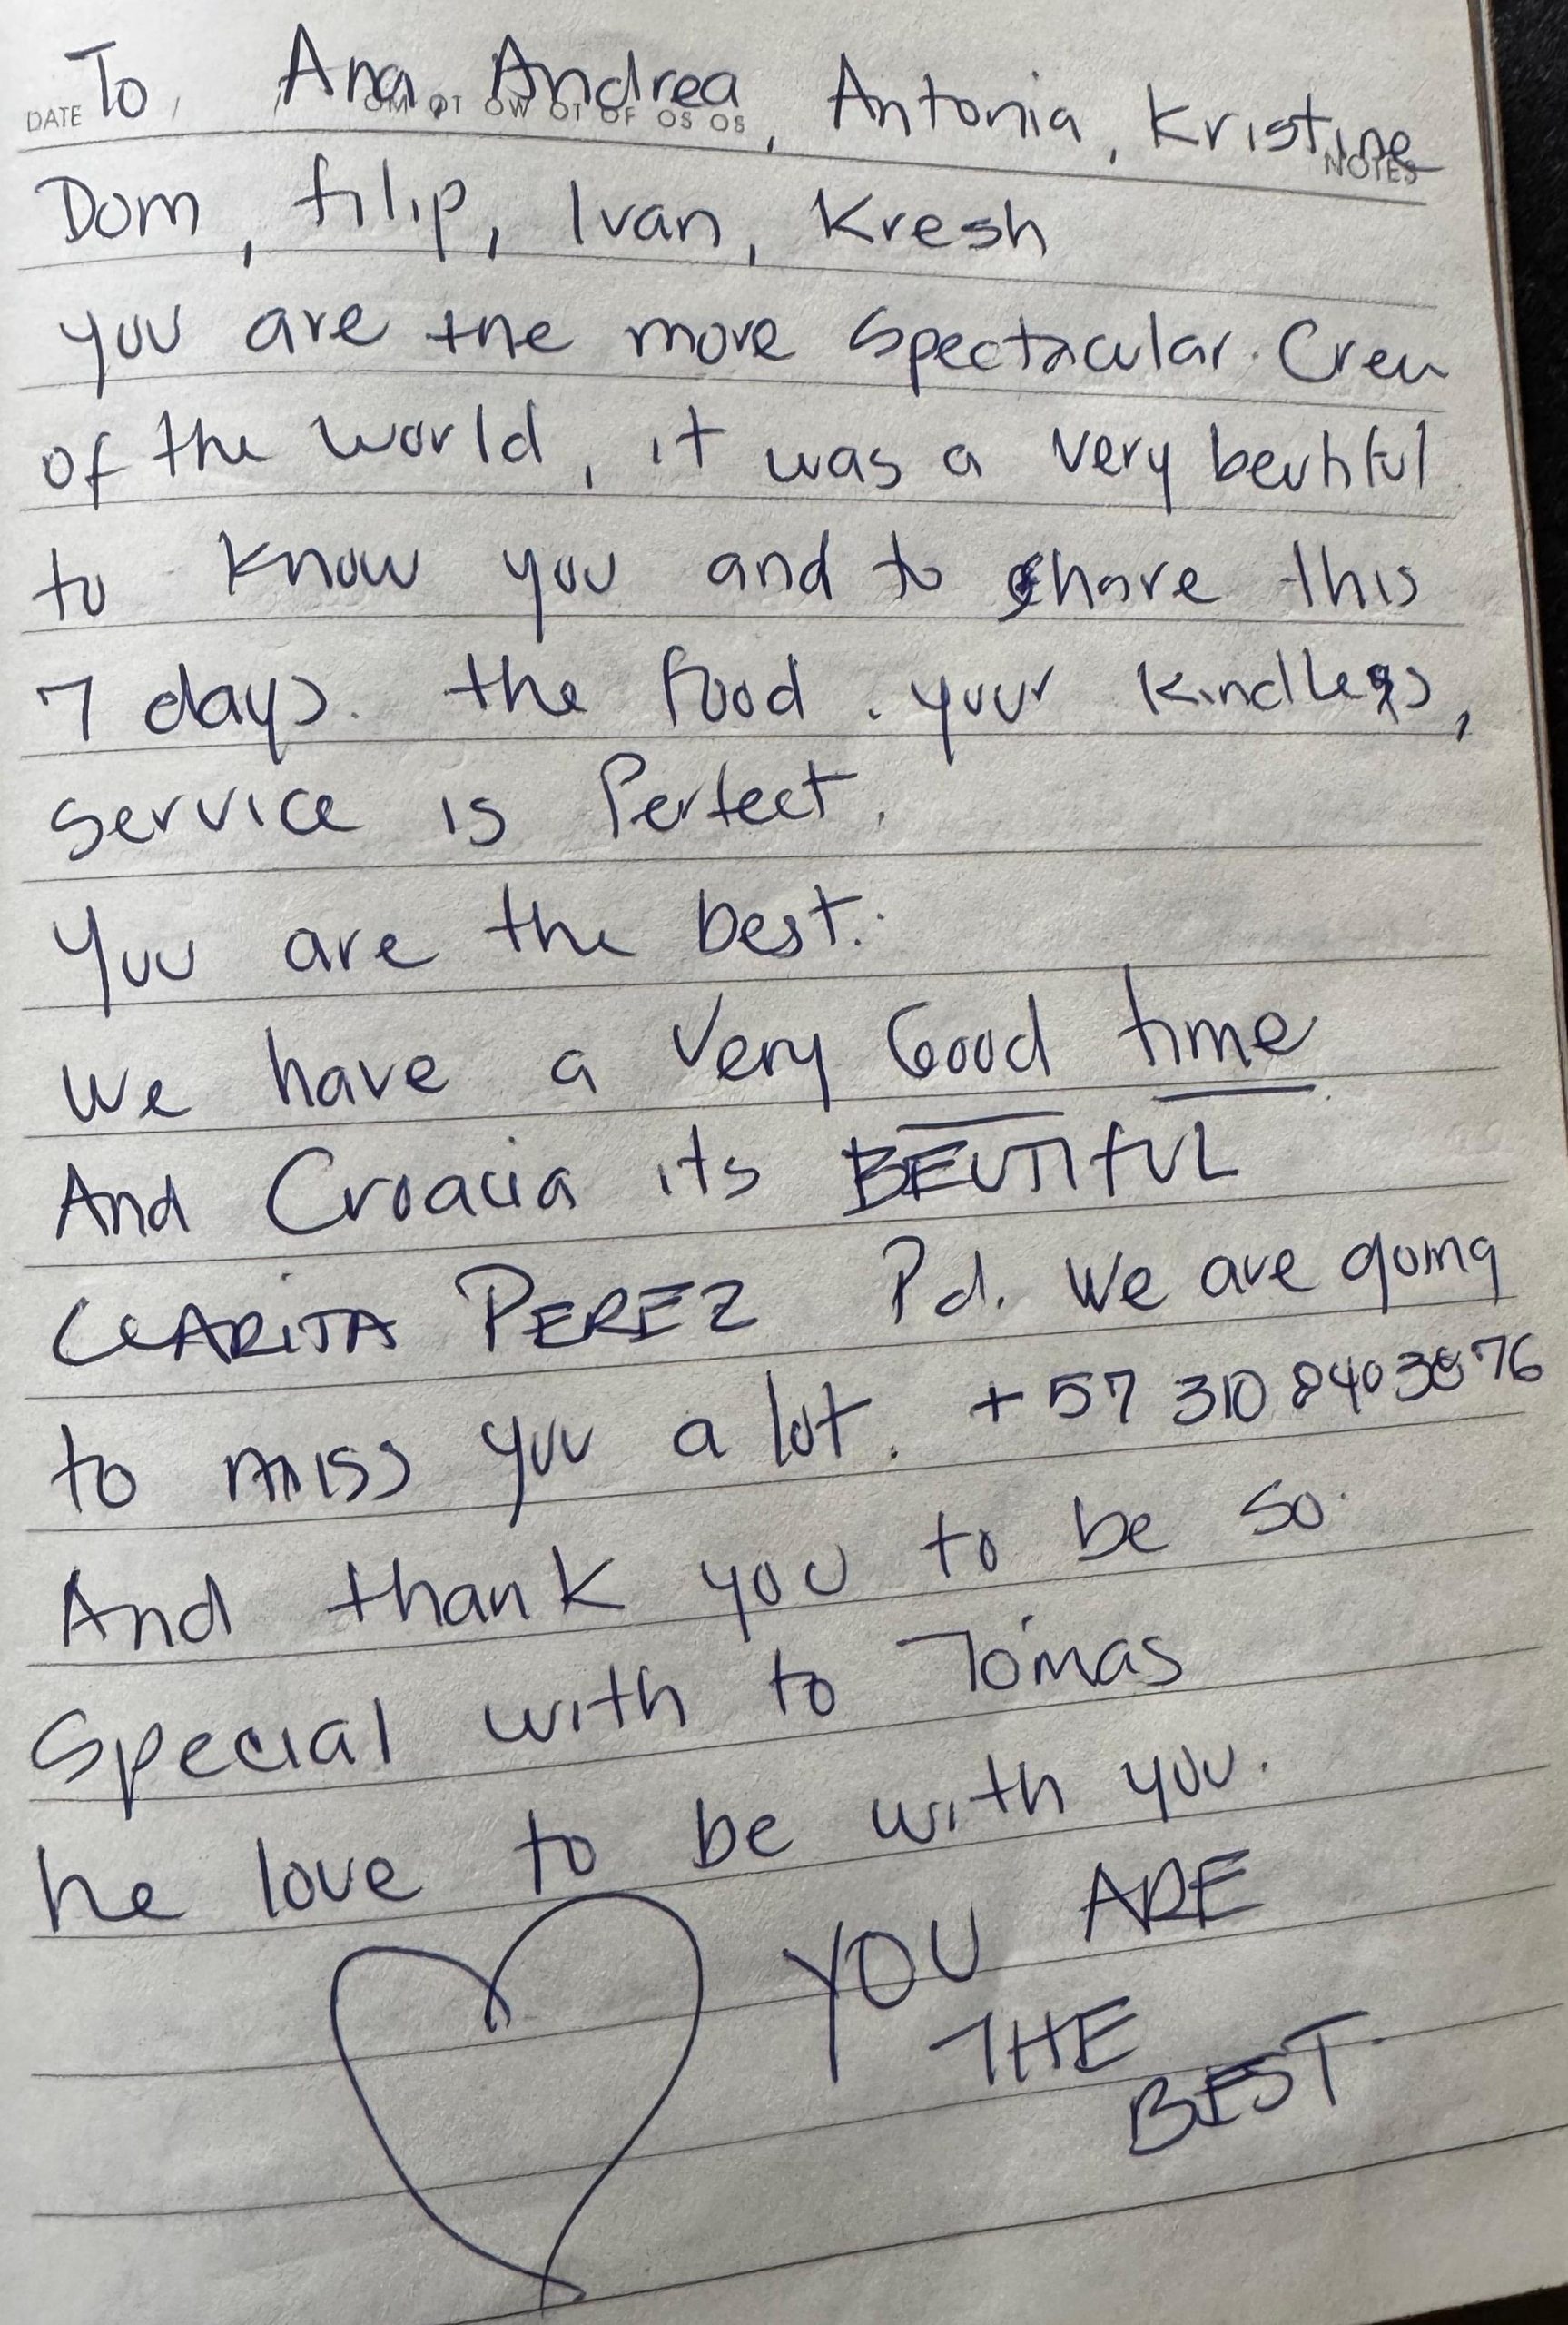 To Ana, Andrea, Antonia, Kristine
DATE / / OM OT OW OT OF OS OS
NOTES
Dom, Filip, Ivan, Kresh
you are the more spectacular Crew
of the world, it was a very beutiful
to know you and to share this
7 days. the food. your kindless,
service is Perfect.
You are the best.
We have a Very Good time.
And Croacia its BEUTIFUL
CLARITA PEREZ Pd. We are going
to miss you a lot. +57 310 8403876
And thank you to be so
Special with to Tomas
he love to be with you.
YOU ARE
THE
BEST.